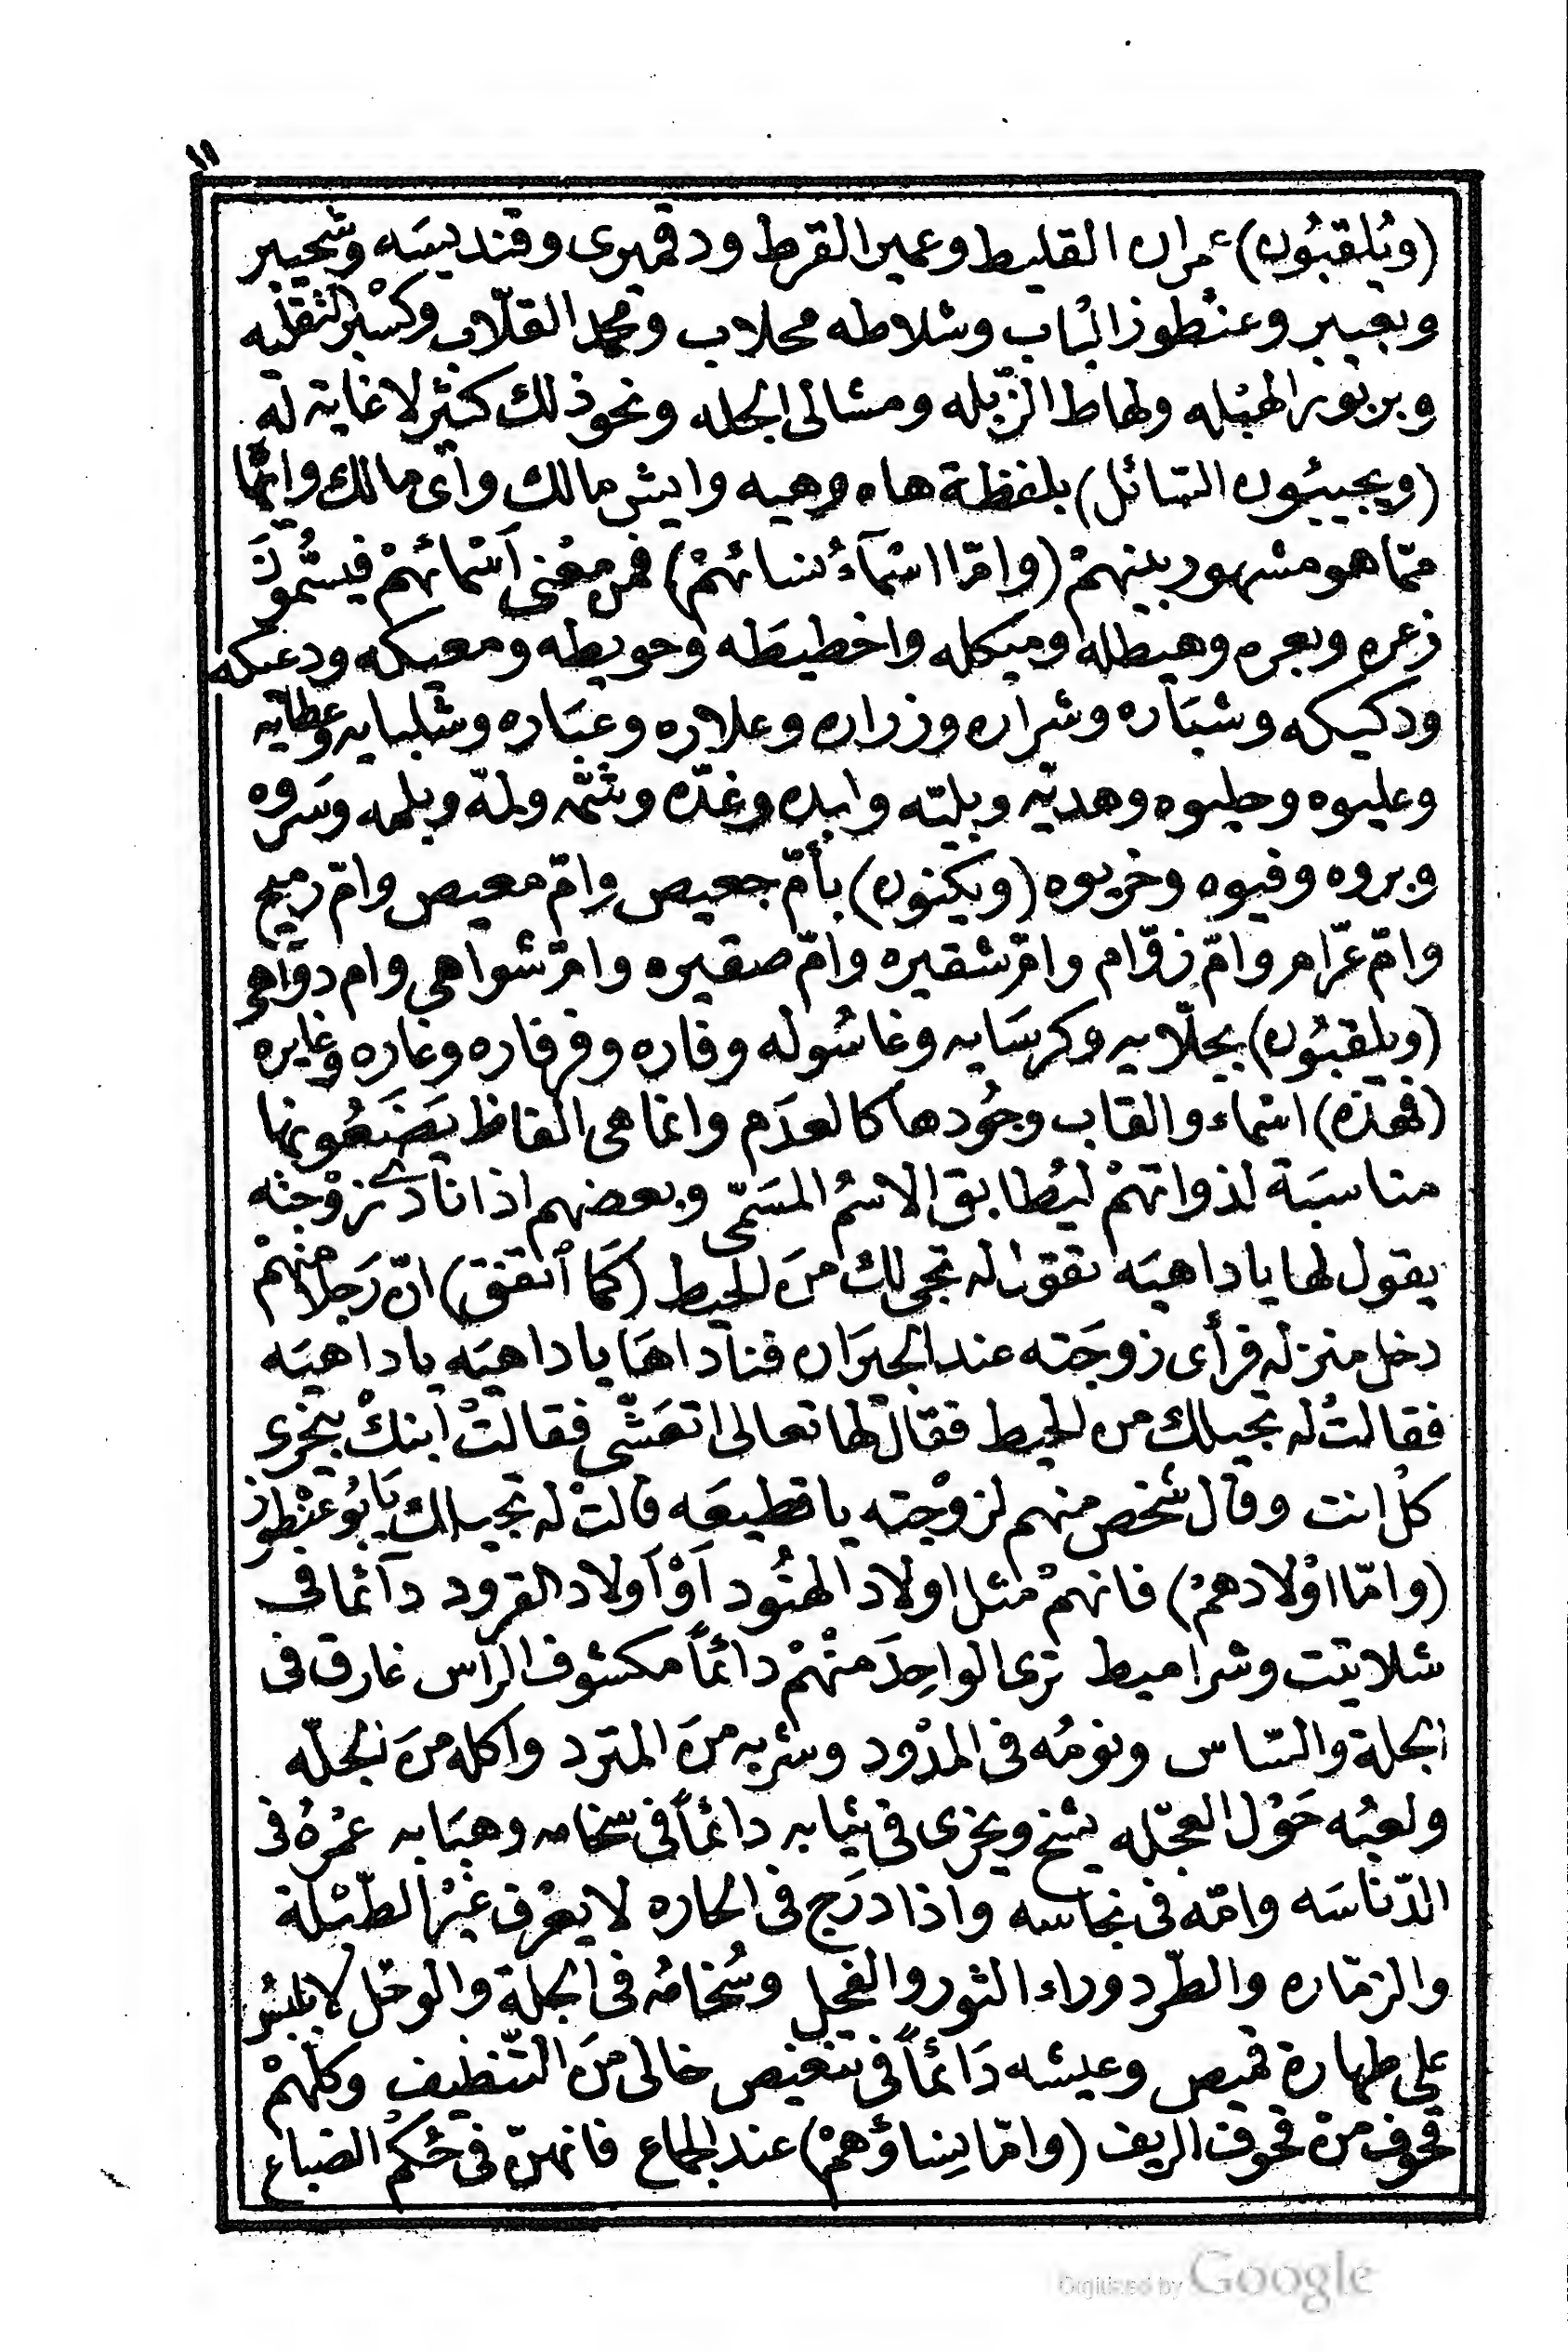 ١١
(ويُلقبُون) عمران القليط وعمير القرط ودقميرى وقنديسَه وشحيبر
وبعيبر وعنْطوز البُاب وشلاطه محلاب ومحمد القلّاب وكسْبر الثقليه
وبربور الهبْله ولهاط الزّبْله ومشالى الجله ونحو ذلك كثير لا غاية له
(ويجيبُون السّائل) بلفظة هاه وهيه وايش مالك وآى مالك وانّما
ممّا هو مشهور بينهمْ (وامّا اسْمآءُ نسائهمْ) فمن معْنى آسْمائهمْ فيسمُّونَ
زعره وبعره وهيطله وميكله واخطيطَه وحويطه ومعيكه ودعيكه
ودكيكه وشبَاره وشراره وزراره وعلاره وعبَاره وشلبايه وعطايه
وعليوه وحليوه وهديّه وبليّه وابده وغدّه وشمّه ولمّة وبلهه وسَروه
وبروه وفيوه وخريوه (ويكنون) بأمّ جعيص وامّ معيص وامّ رميح
وامّ عرّام وامّ زقرام وامّ شقيره وامّ صقيره وامّ شواهى وام دوَاهى
(ويلقبُون) بجلّابيه وكرسَايه وغاسُوله وفاره وفرفاره وعاره وغايره
(فهذه) اسْماء والقاب وجُودها كالعدَم وانما هى الفاظ يَضَعُونها
مناسبَة لذواتهمْ ليُطابق الاسْمُ المسَمّى وبعضهم اذا نادَى زوْجته
يقول لها ياداهيَه تقول له تجى لك منَ الحيط (كمَا اتفق) انّ رَجلًا منهمْ
دخل منزله فرأى زوجَته عند الجيرَان فناداهَا ياداهيَه ياداهيَه
فقالتْ له تجيلك من الحيط فقال لها تعالى اتعَشّى فقالتْ ابنكْ بيخرى
كل انت وقال شخص منهم لزوْجته يا قطيعَه قالتْ له تجيلك يَا بُو عنْطوز
(وامّا اوْلادهمْ) فانهمْ مثل اولاد الهنُود آوْ آولاد القرود دآئما فى
شلاتيت وشراميط ترى الواحِدَ منْهمْ دائمًا مكشوف الرّاس غارق فى
الجلة والسّاس ونومُه فى المدْود وشربه منَ المترد واكله منَ الجلّه
ولعبُه حَوْل العجْله يشخ ويخرى فى ثيابه دائمًا فى سخامه وهبَابه عمْرهُ فى
الدّناسَه وامّه فى نجاسه واذا درَج فى الحاره لا يعْرف غيْر الطّبْلة
والزمّاره والطّرد وراء الثور والفحل وسُخامُه فى الجلة والوحْل لا يلبسُ
على طهارة قميص وعيشه دَائمًا فى تنغيص خالى منَ التّنظيف وكلهمْ
قحوف منْ قحوف الريف (وامّا نِساؤهمْ) عند الجماع فانهنّ فى حُكم الضباع
Digitized by Google